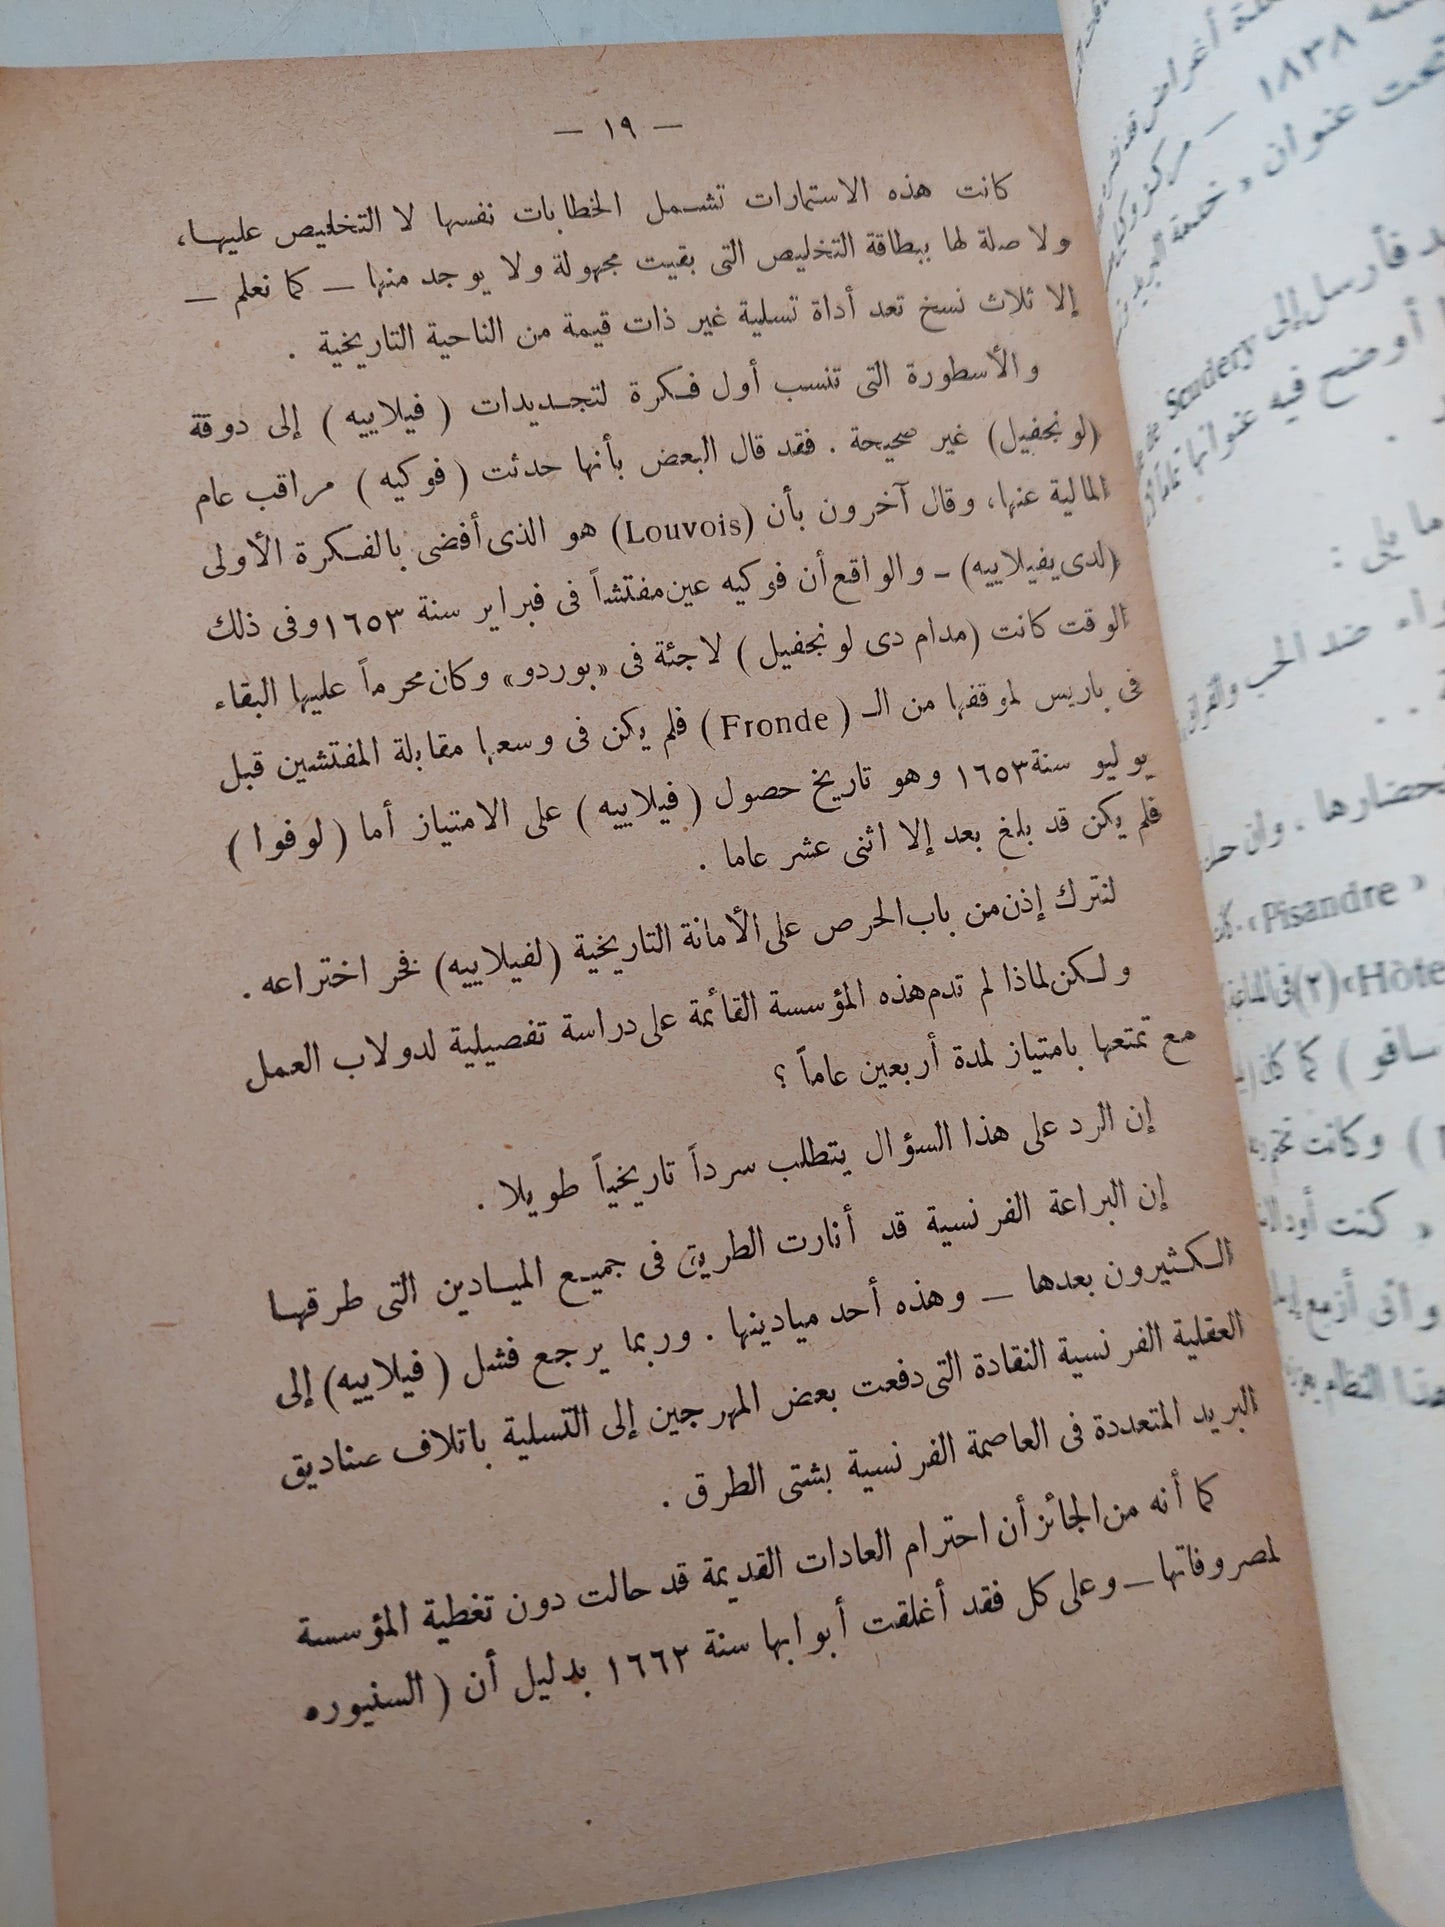 — ١٩ —
كانت هذه الاستمارات تشمل الخطابات نفسها لا التخليص عليها،
ولا صلة لها ببطاقة التخليص التى بقيت مجهولة ولا يوجد منها — كما نعلم —
إلا ثلاث نسخ تعد أداة تسلية غير ذات قيمة من الناحية التاريخية .
والأسطورة التى تنسب أول فكرة لتجديدات ( فيلاييه ) إلى دوقة
(لونجفيل) غير صحيحة . فقد قال البعض بأنها حدثت ( فوكيه ) مراقب عام
المالية عنها، وقال آخرون بأن (Louvois) هو الذى أفضى بالفكرة الأولى
(لدى يفيلاييه) — والواقع أن فوكيه عين مفتشاً فى فبراير سنة ١٦٥٣ وفى ذلك
الوقت كانت (مدام دى لونجفيل ) لاجئة فى «بوردو» وكان محرماً عليها البقاء
فى باريس لموقفها من الـ ( Fronde ) فلم يكن فى وسعها مقابلة المفتشين قبل
يوليو سنة ١٦٥٣ وهو تاريخ حصول ( فيلاييه ) على الامتياز أما ( لوفوا )
فلم يكن قد بلغ بعد إلا اثنى عشر عاما .
لنترك إذن من باب الحرص على الأمانة التاريخية (لفيلاييه) فخر اختراعه .
ولكن لماذا لم تدم هذه المؤسسة القائمة على دراسة تفصيلية لدولاب العمل
مع تمتعها بامتياز لمدة أربعين عاماً ؟
إن الرد على هذا السؤال يتطلب سرداً تاريخياً طويلا .
إن البراعة الفرنسية قد أنارت الطريق فى جميع الميادين التى طرقها
الكثيرون بعدها — وهذه أحد ميادينها . وربما يرجع فشل ( فيلاييه) إلى
العقلية الفرنسية النقادة التى دفعت بعض المهرجين إلى التسلية باتلاف صناديق
البريد المتعددة فى العاصمة الفرنسية بشتى الطرق .
كما أنه من الجائز أن احترام العادات القديمة قد حالت دون تغطية المؤسسة
لمصروفاتها — وعلى كل فقد أغلقت أبوابها سنة ١٦٦٢ بدليل أن ( السنيوره
١٨٣٨ — مركز
تحت عنوان «
فأرسل إلى Scudery
أوضح فيه عنوانها
ما يلى :
ضد الحب
. وان
« Pisandre »
Hôte» (٢)
ساقو ) كما كان
) وكانت
« كنت
وانى أزمع
هذا النظام